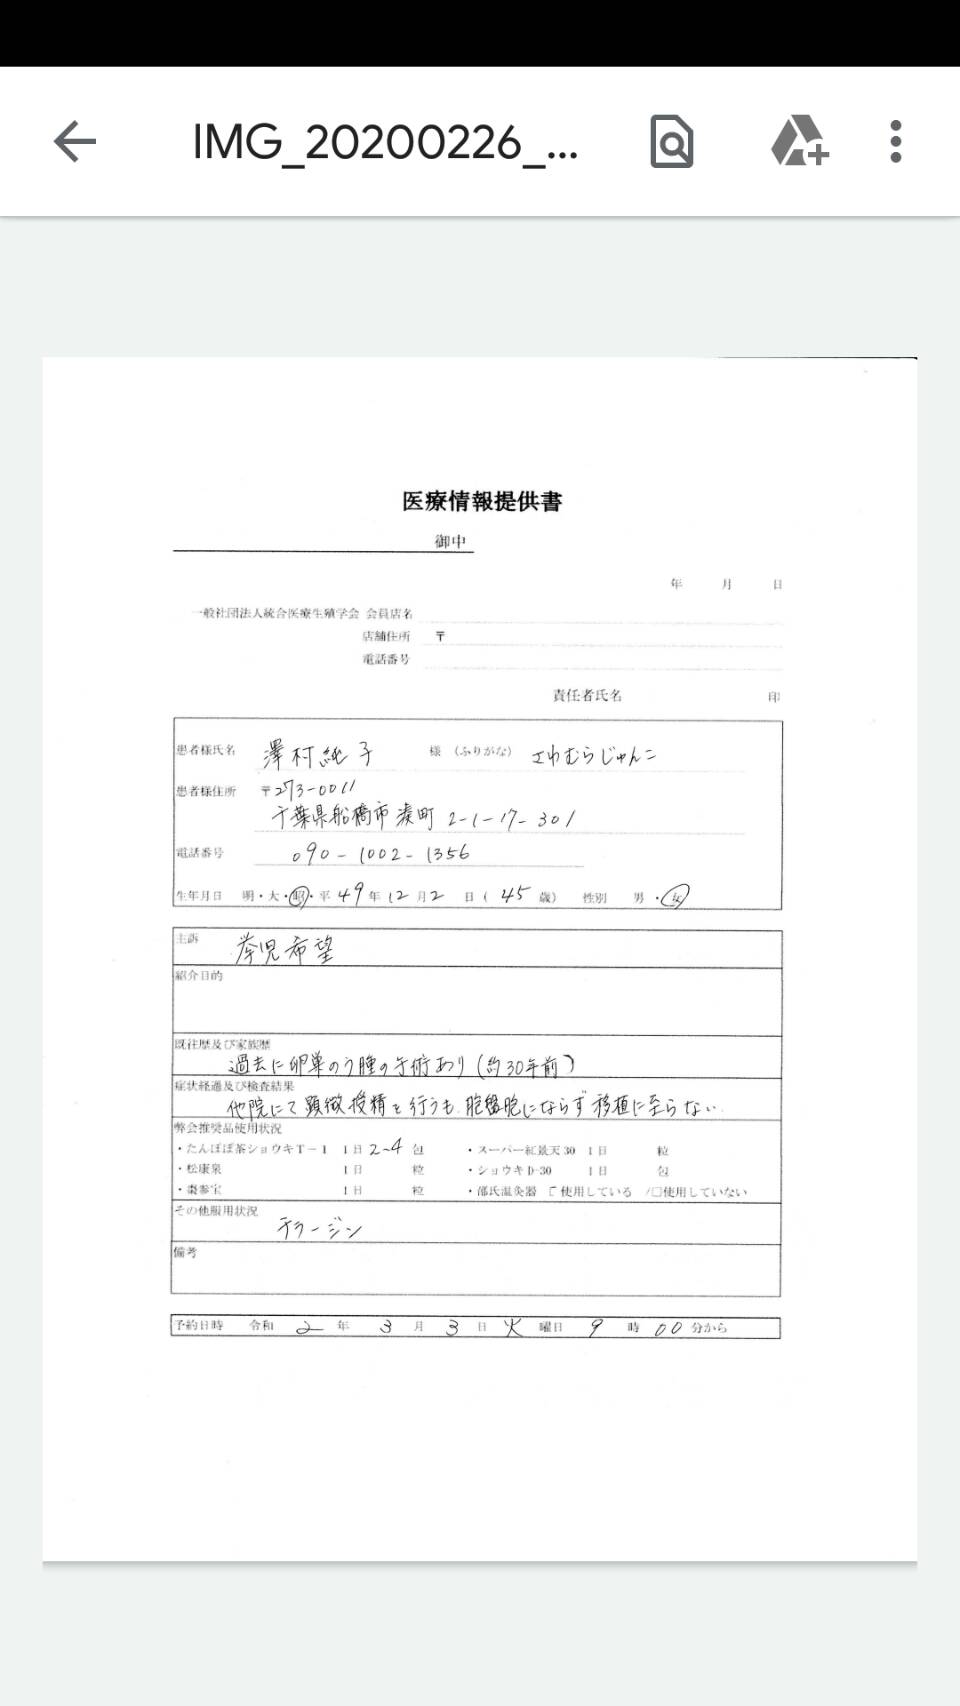 IMG_20200226_...
医療情報提供書
御中
年 月 日
一般社団法人統合医療生殖学会 会員店名
店舗住所 〒
電話番号
責任者氏名 印
患者様氏名 澤村純子 様 (ふりがな) さわむらじゅんこ
患者様住所 〒273-0011
千葉県船橋市湊町 2-1-17-301
電話番号 090-1002-1356
生年月日 明・大・昭・平 49年12月2日(45歳) 性別 男・女
主訴 挙児希望
紹介目的
既往歴及び家族歴
過去に卵巣のう腫の手術あり(約30年前)
症状経過及び検査結果
他院にて顕微授精を行うも、胚盤胞にならず移植に至らない。
弊会推奨品使用状況
・たんぽぽ茶ショウキT-1 1日2~4包 ・スーパー紅景天30 1日 粒
・松康泉 1日 粒 ・ショウキD-30 1日 包
・棗参宝 1日 粒 ・邵氏温灸器 □使用している /□使用していない
その他服用状況
テラージン
備考
予約日時 令和 2年 3月 3日 火曜日 9時 00分から